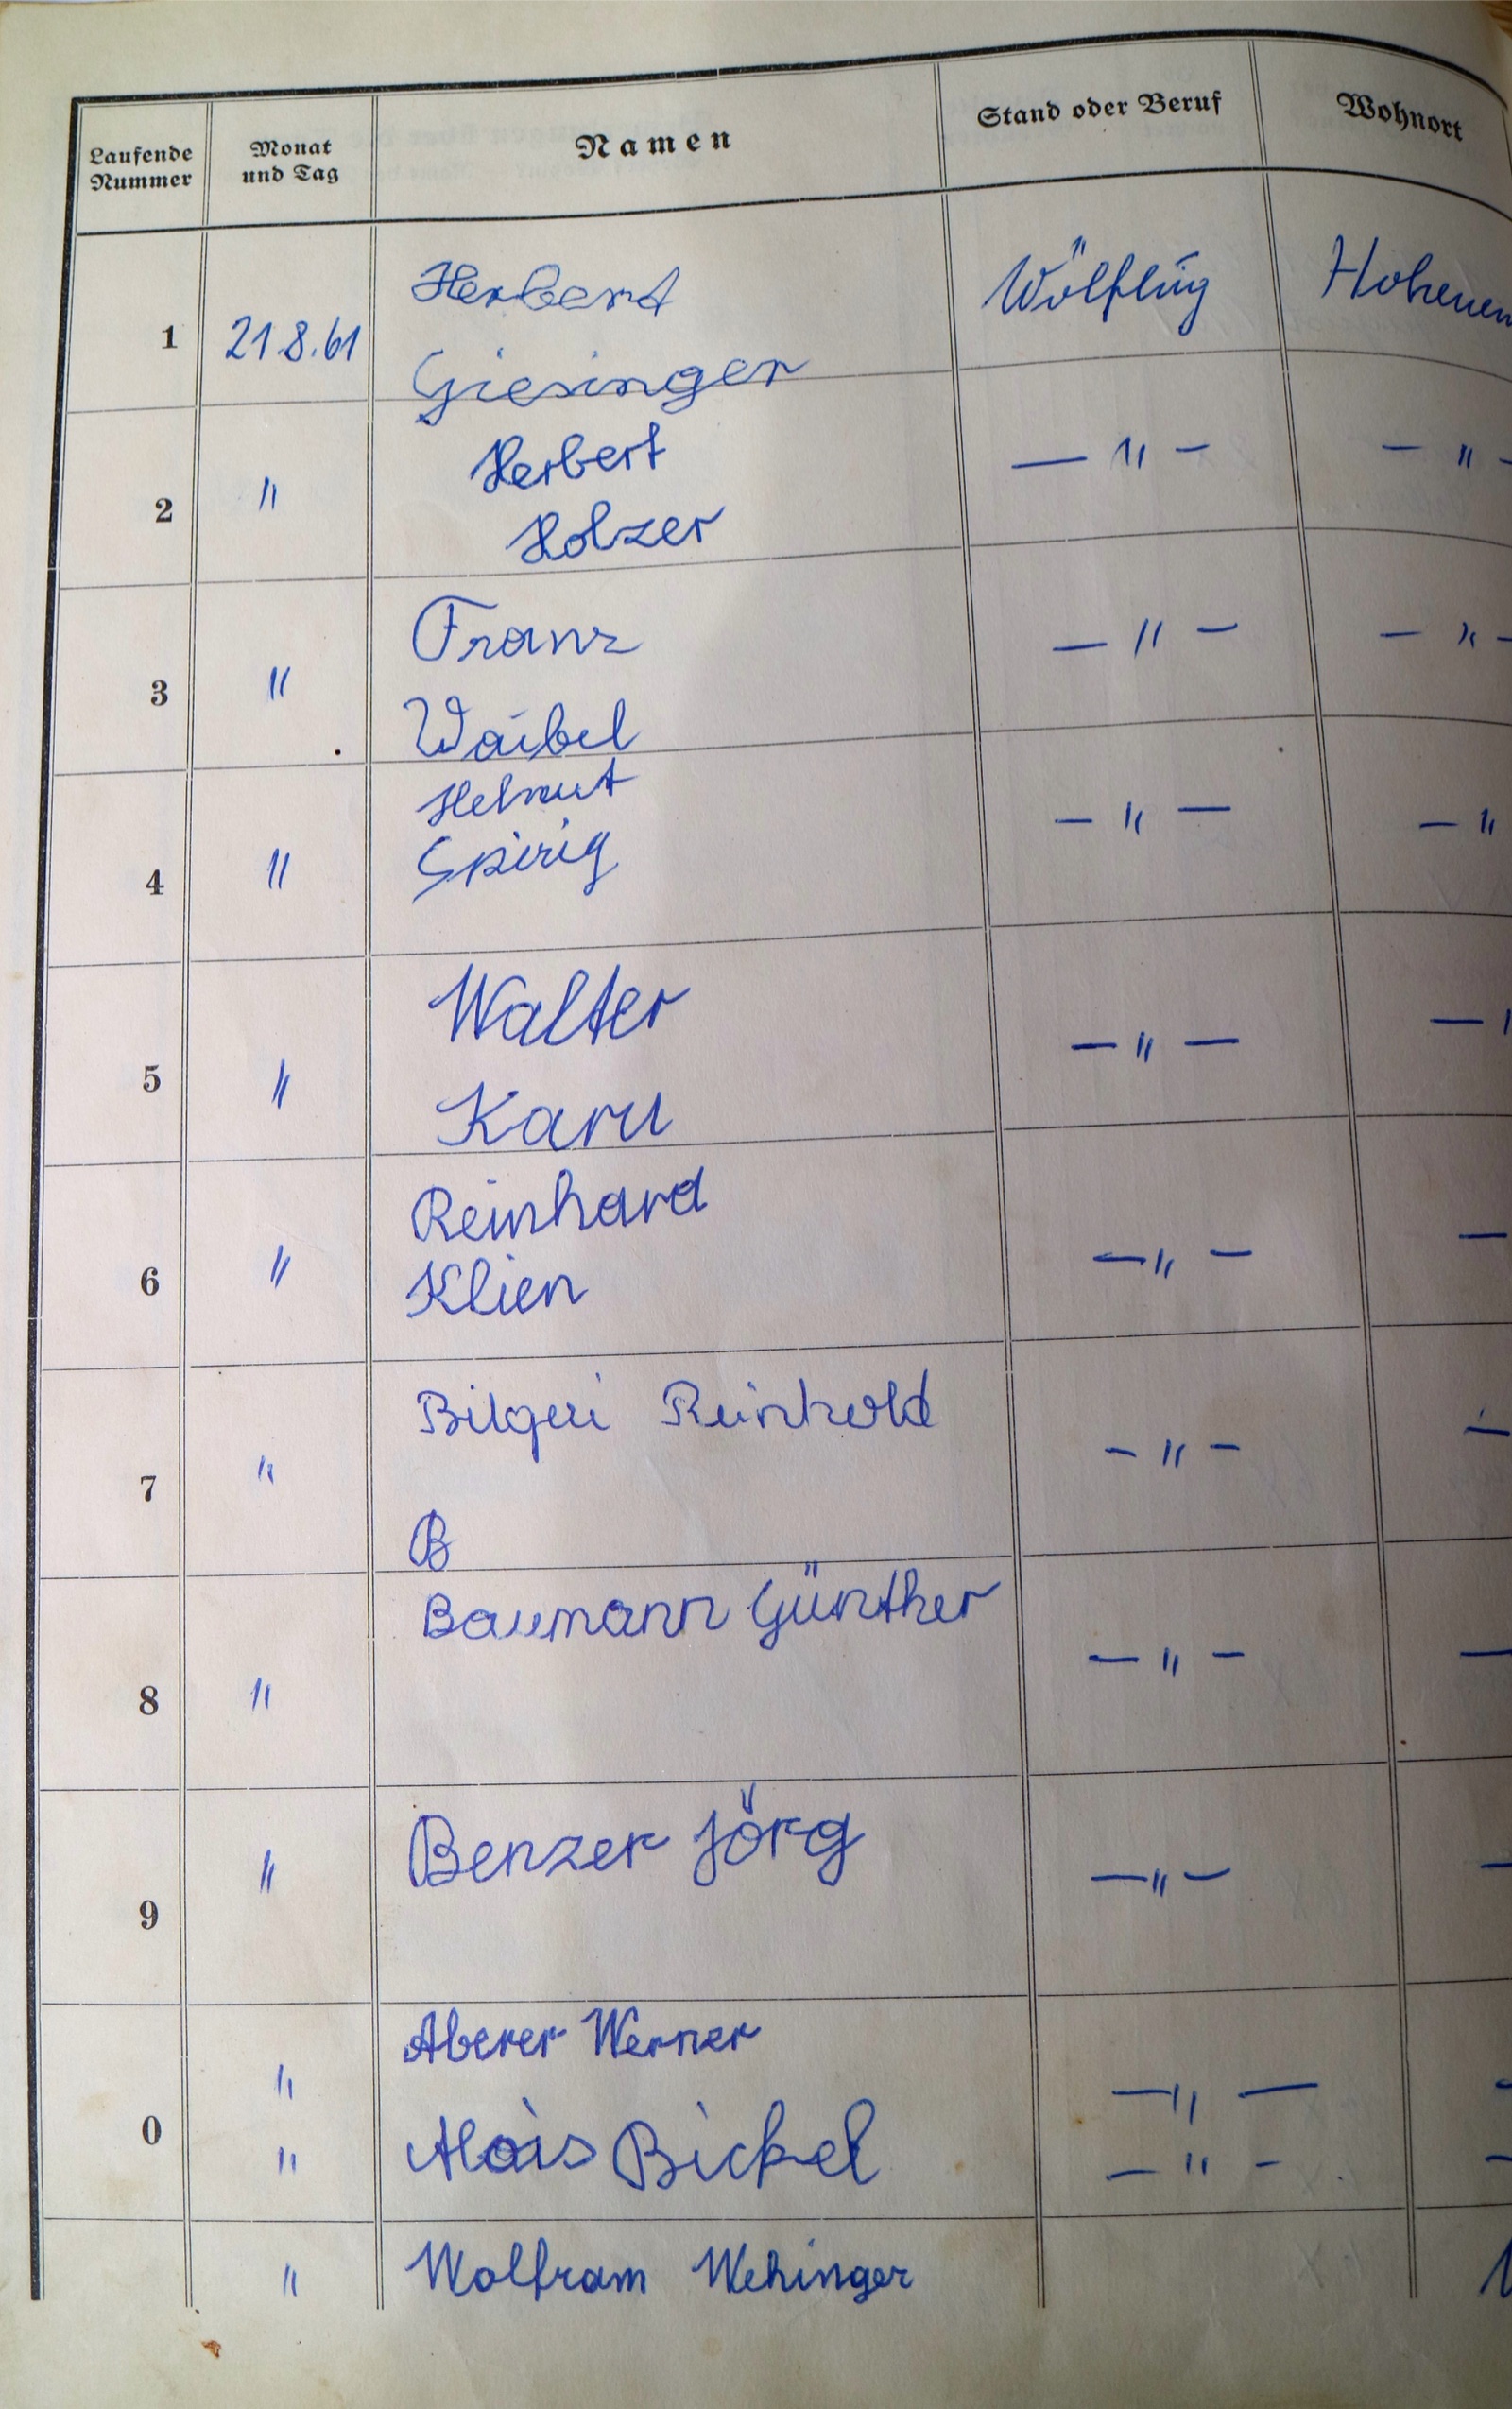 Laufende Nummer Monat und Tag Namen Stand oder Beruf Wohnort
1 21.8.61 Herbert Giesinger Wölfling Hohenem
2 〃 Herbert Holzer — 〃 — — 〃 -
3 〃 Franz Waibel — 〃 — — 〃 -
4 〃 Helmut Spirig — 〃 — — 〃
5 〃 Walter Karu — 〃 — —
6 〃 Reinhard Klien — 〃 — —
7 〃 Bilgeri Reinhold B — 〃 — —
8 〃 Baumann Günther — 〃 — —
9 〃 Benzer Jörg — 〃 — —
0 〃 Aberer Werner — 〃 — -
〃 Alois Bickel — 〃 — -
〃 Wolfram Wehinger